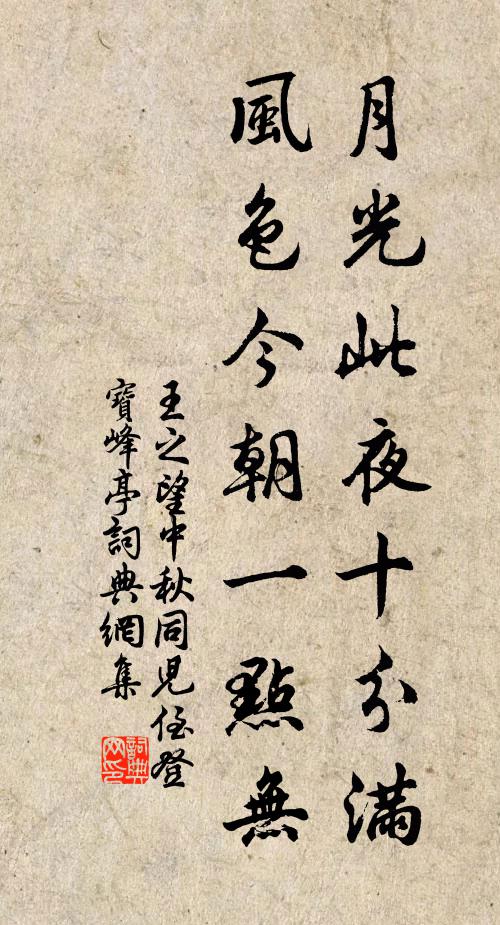 月光此夜十分滿
風色今朝一點無
王之望中秋同兒侄登
寶峰亭詞典網集
詞典網印